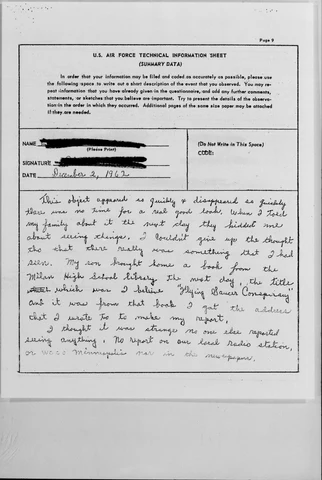 Page 9
U.S. AIR FORCE TECHNICAL INFORMATION SHEET
(SUMMARY DATA)
In order that your information may be filed and coded as accurately as possible, please use
the following space to write out a short description of the event that you observed. You may re-
peat information that you have already given in the questionnaire, and add any further comments,
statements, or sketches that you believe are important. Try to present the details of the observa-
tion in the order in which they occurred. Additional pages of the same size paper may be attached
if they are needed.
NAME
(Please Print)
SIGNATURE
DATE December 2, 1962
(Do Not Write in This Space)
CODE:
This object appeared so quickly & disappeared so quickly
there was no time for a real good look. When I told
my family about it the next day they kidded me
about seeing things. I couldn't give up the thought
tho that there really was something that I had
seen. My son brought home a book from the
Milan High School Library the next day, the title
which was I believe "Flying Saucer Conspiracy"
and it was from that book I got the address
that I wrote too to make my report.
I thought it was strange no one else reported
seeing anything. No report on our local radio station,
or Minneapolis nor in the newspapers.